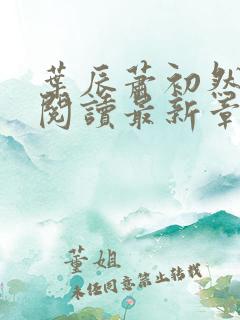 葉辰蕭初然
閱讀最新章
董姐
未經同意禁止轉載